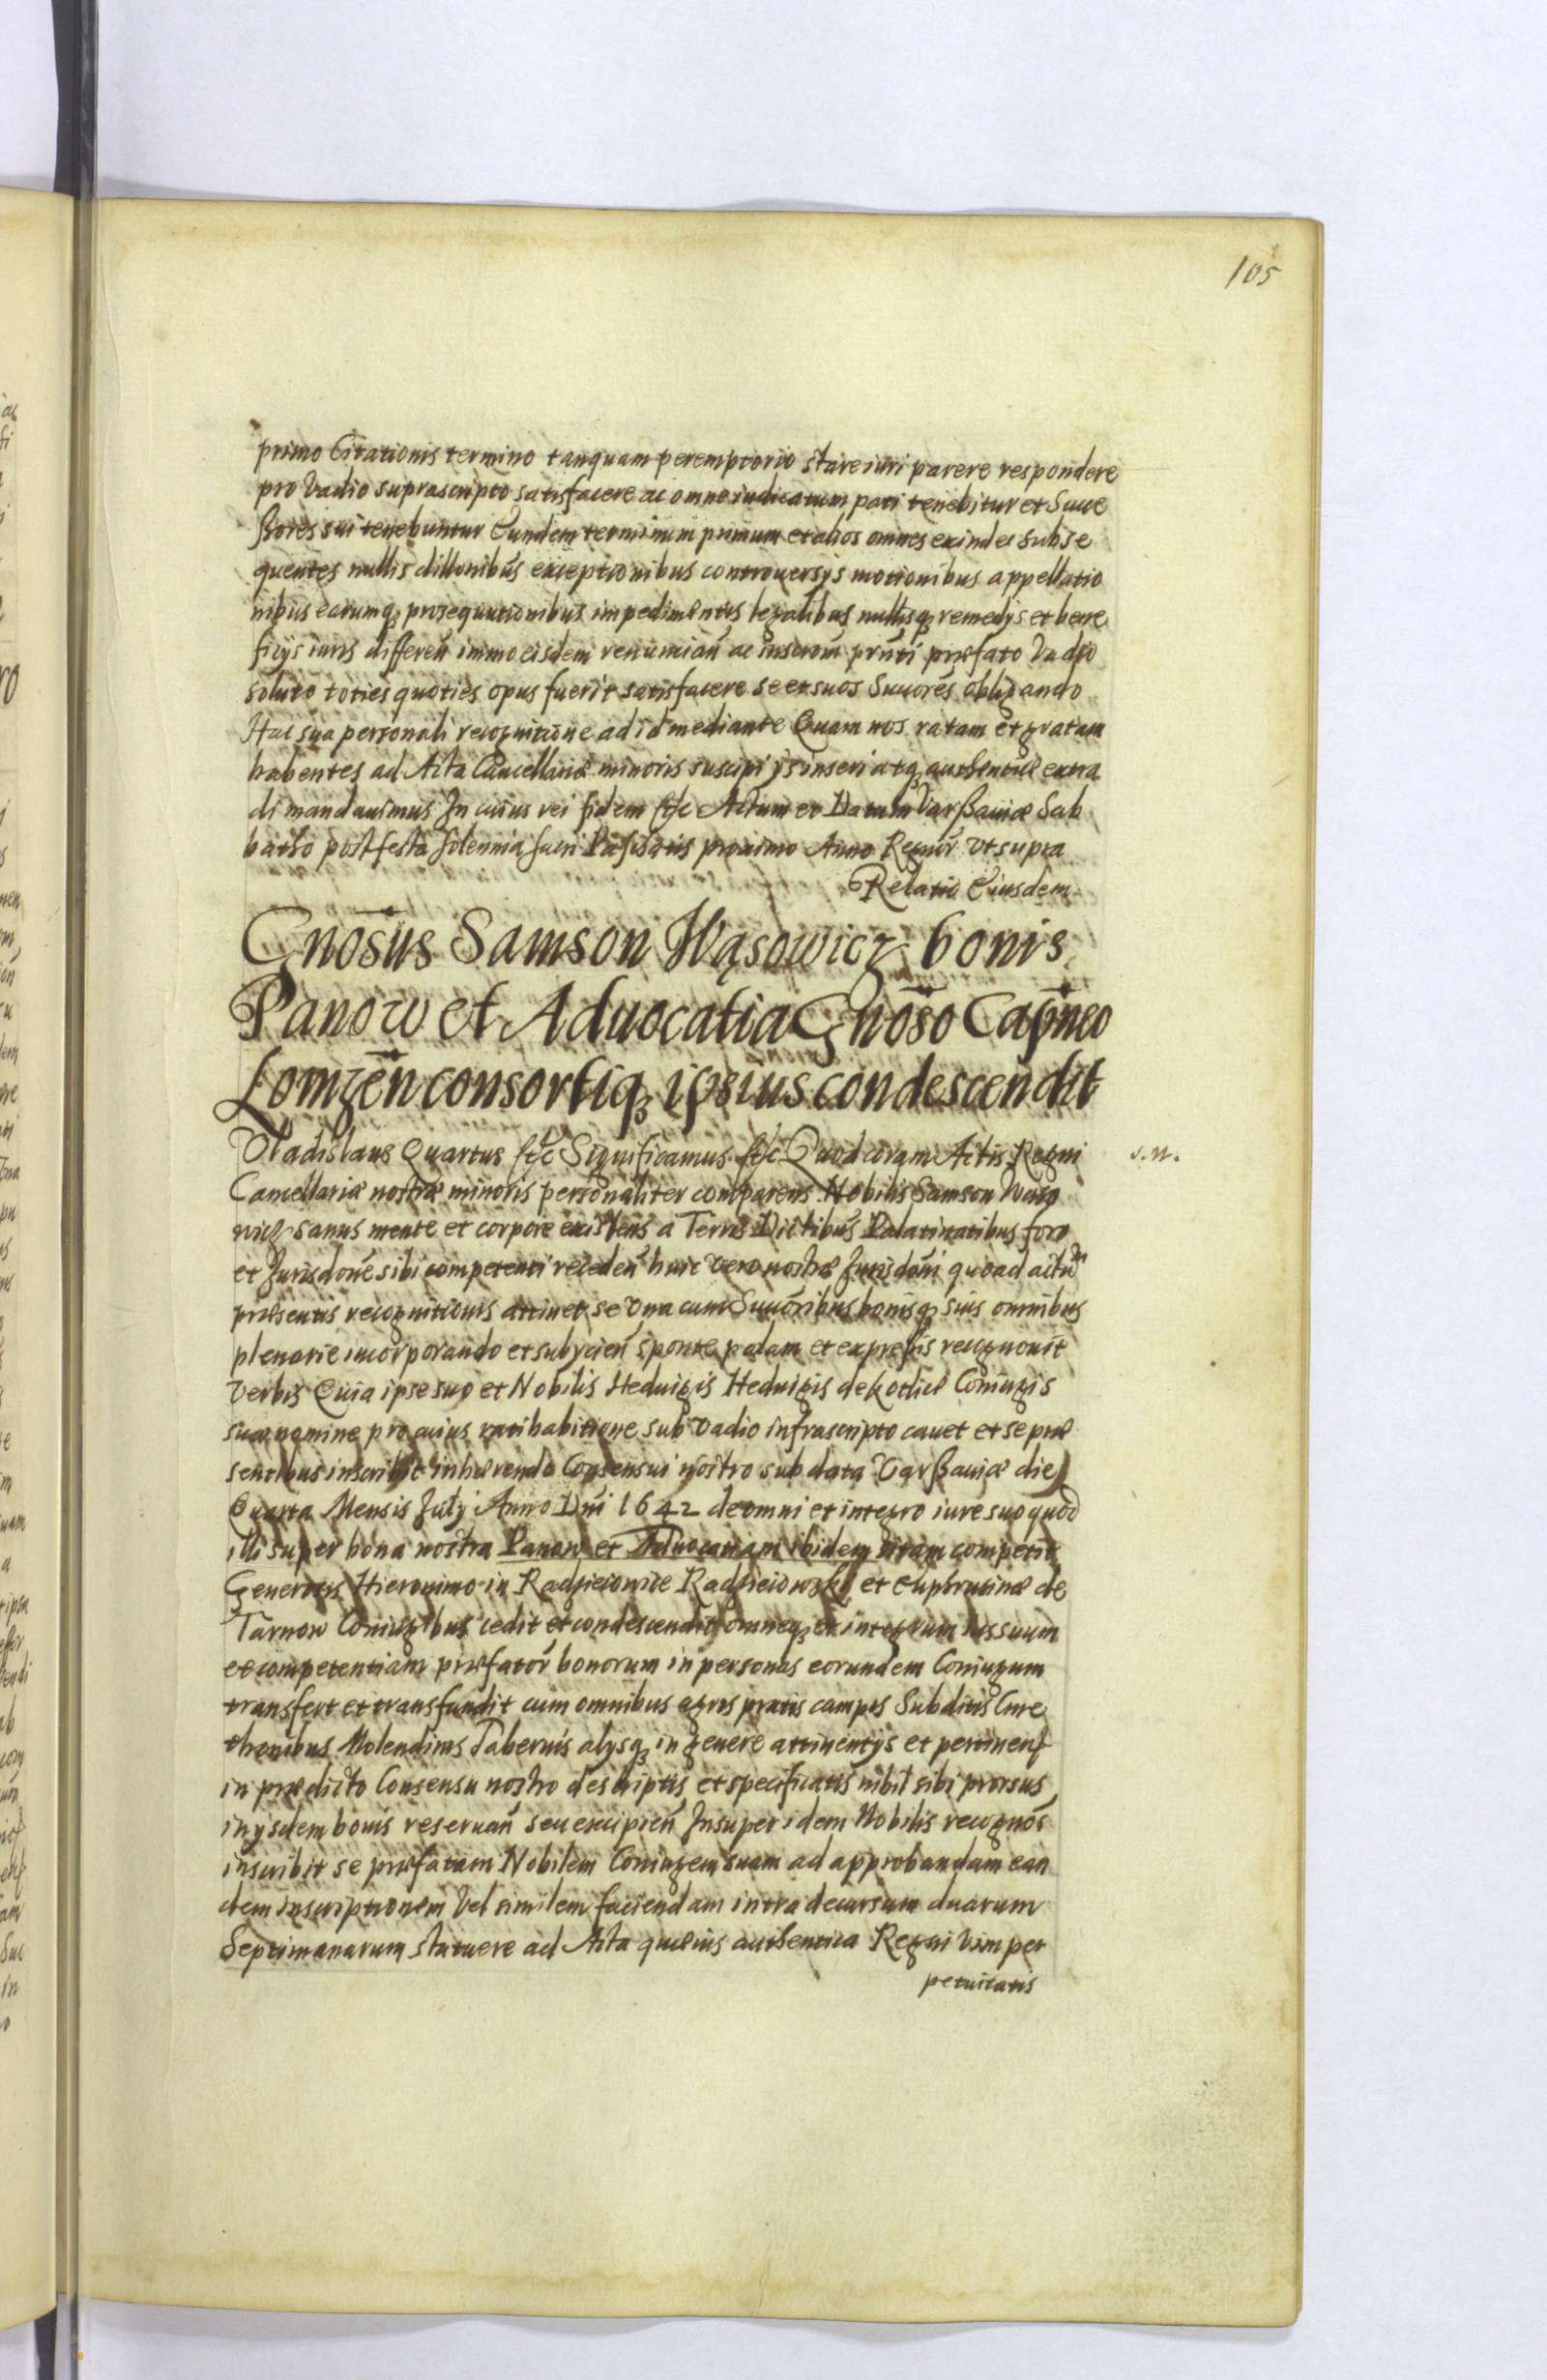 105
primo Citationis termino tanquam peremptorio stare iuri parere respondere
pro Vadio suprascripto satisfacere ac omne iudicatum pati tenebitur et Succe
ßores sui tenebuntur Eundem terminum primum et alios omnes exinde subse
quentes nullis dillonibus exceptionibus controuersys motionibus appellatio
nibus earumq prosequutionibus impedimentis legalibus nullisq remedys et bene
ficys iuris differen immo eisdem renuncian ac prnti præfato Vadio
soluto toties quoties opus fuerit satisfacere se et suos Succores obligando
Hac sua personali recognitione ad id mediante Quam nos ratam et gratam
habentes ad Acta Cancellariæ minoris suscipi ijs inseri atq authenticè extra
di mandauimus In cuius rei fidem &c Actum et Datum Varßauiæ Sab
batho post festa solennia sacri Paschatis proximo Anno Regnor Vt supra
Relatio Eiusdem
Gnosus Samson Wąsowicz bonis
Panow et Aduocatia Gnoso Capneo
Lomzen consortiq ipsius condescendit
Vladislaus Quartus &c Significamus &c Quod coram Actis Regni
Cancellariæ nostræ minoris personaliter comparens Nobilis Samson Wąso
wicz sanus mente et corpore existens a Terris Dictibus Palatinatibus foro
et Jurisdone sibi competenti receden huic vero nostræ Jurisdoni quoad actum
præsentis recognitionis attinet se Vna cum Succoribus bonisq suis omnibus
plenarie incorporando et subycien sponte palam et expreßis recognouit
verbis Quia ipse suo et Nobilis Heduigis Heduigis de Coniugis
suæ nomine pro cuius ratihabitione sub vadio infrascripto cauet et se præ
sentibus inscribit inhærendo Consensui nostro sub data Varßauiæ die
Quarta Mensis July Anno Dni 1642 de omni et integro iure suo quod
illi super bona nostra Panow et Aduocatiam ibidem sitam competit
Generosis Hieronimo in Radzieiowice Radzieiowski et Euphrusinæ de
Tarnow Coniugibus cedit et condescendit omneq et integrum ius suum
et competentiam præfator bonorum in personas eorundem Coniugum
transfert et transfundit cum omnibus agris pratis campis Subditis Cme
thonibus Molendinis Tabernis alysq in genere attinentys et pertinen
in prædicto Consensu nostro descriptis et specificatis nihil sibi prorsus
in ysdem bonis reseruan seu excipien Insuper idem Nobilis recognos
inscribit se præfatam Nobilem Coniugem suam ad approbandam ean
dem inscriptionem Vel similem faciendam intra decursum duarum
Septimanarum statuere ad Acta quæuis authentica Regni Vim per
petuitatis